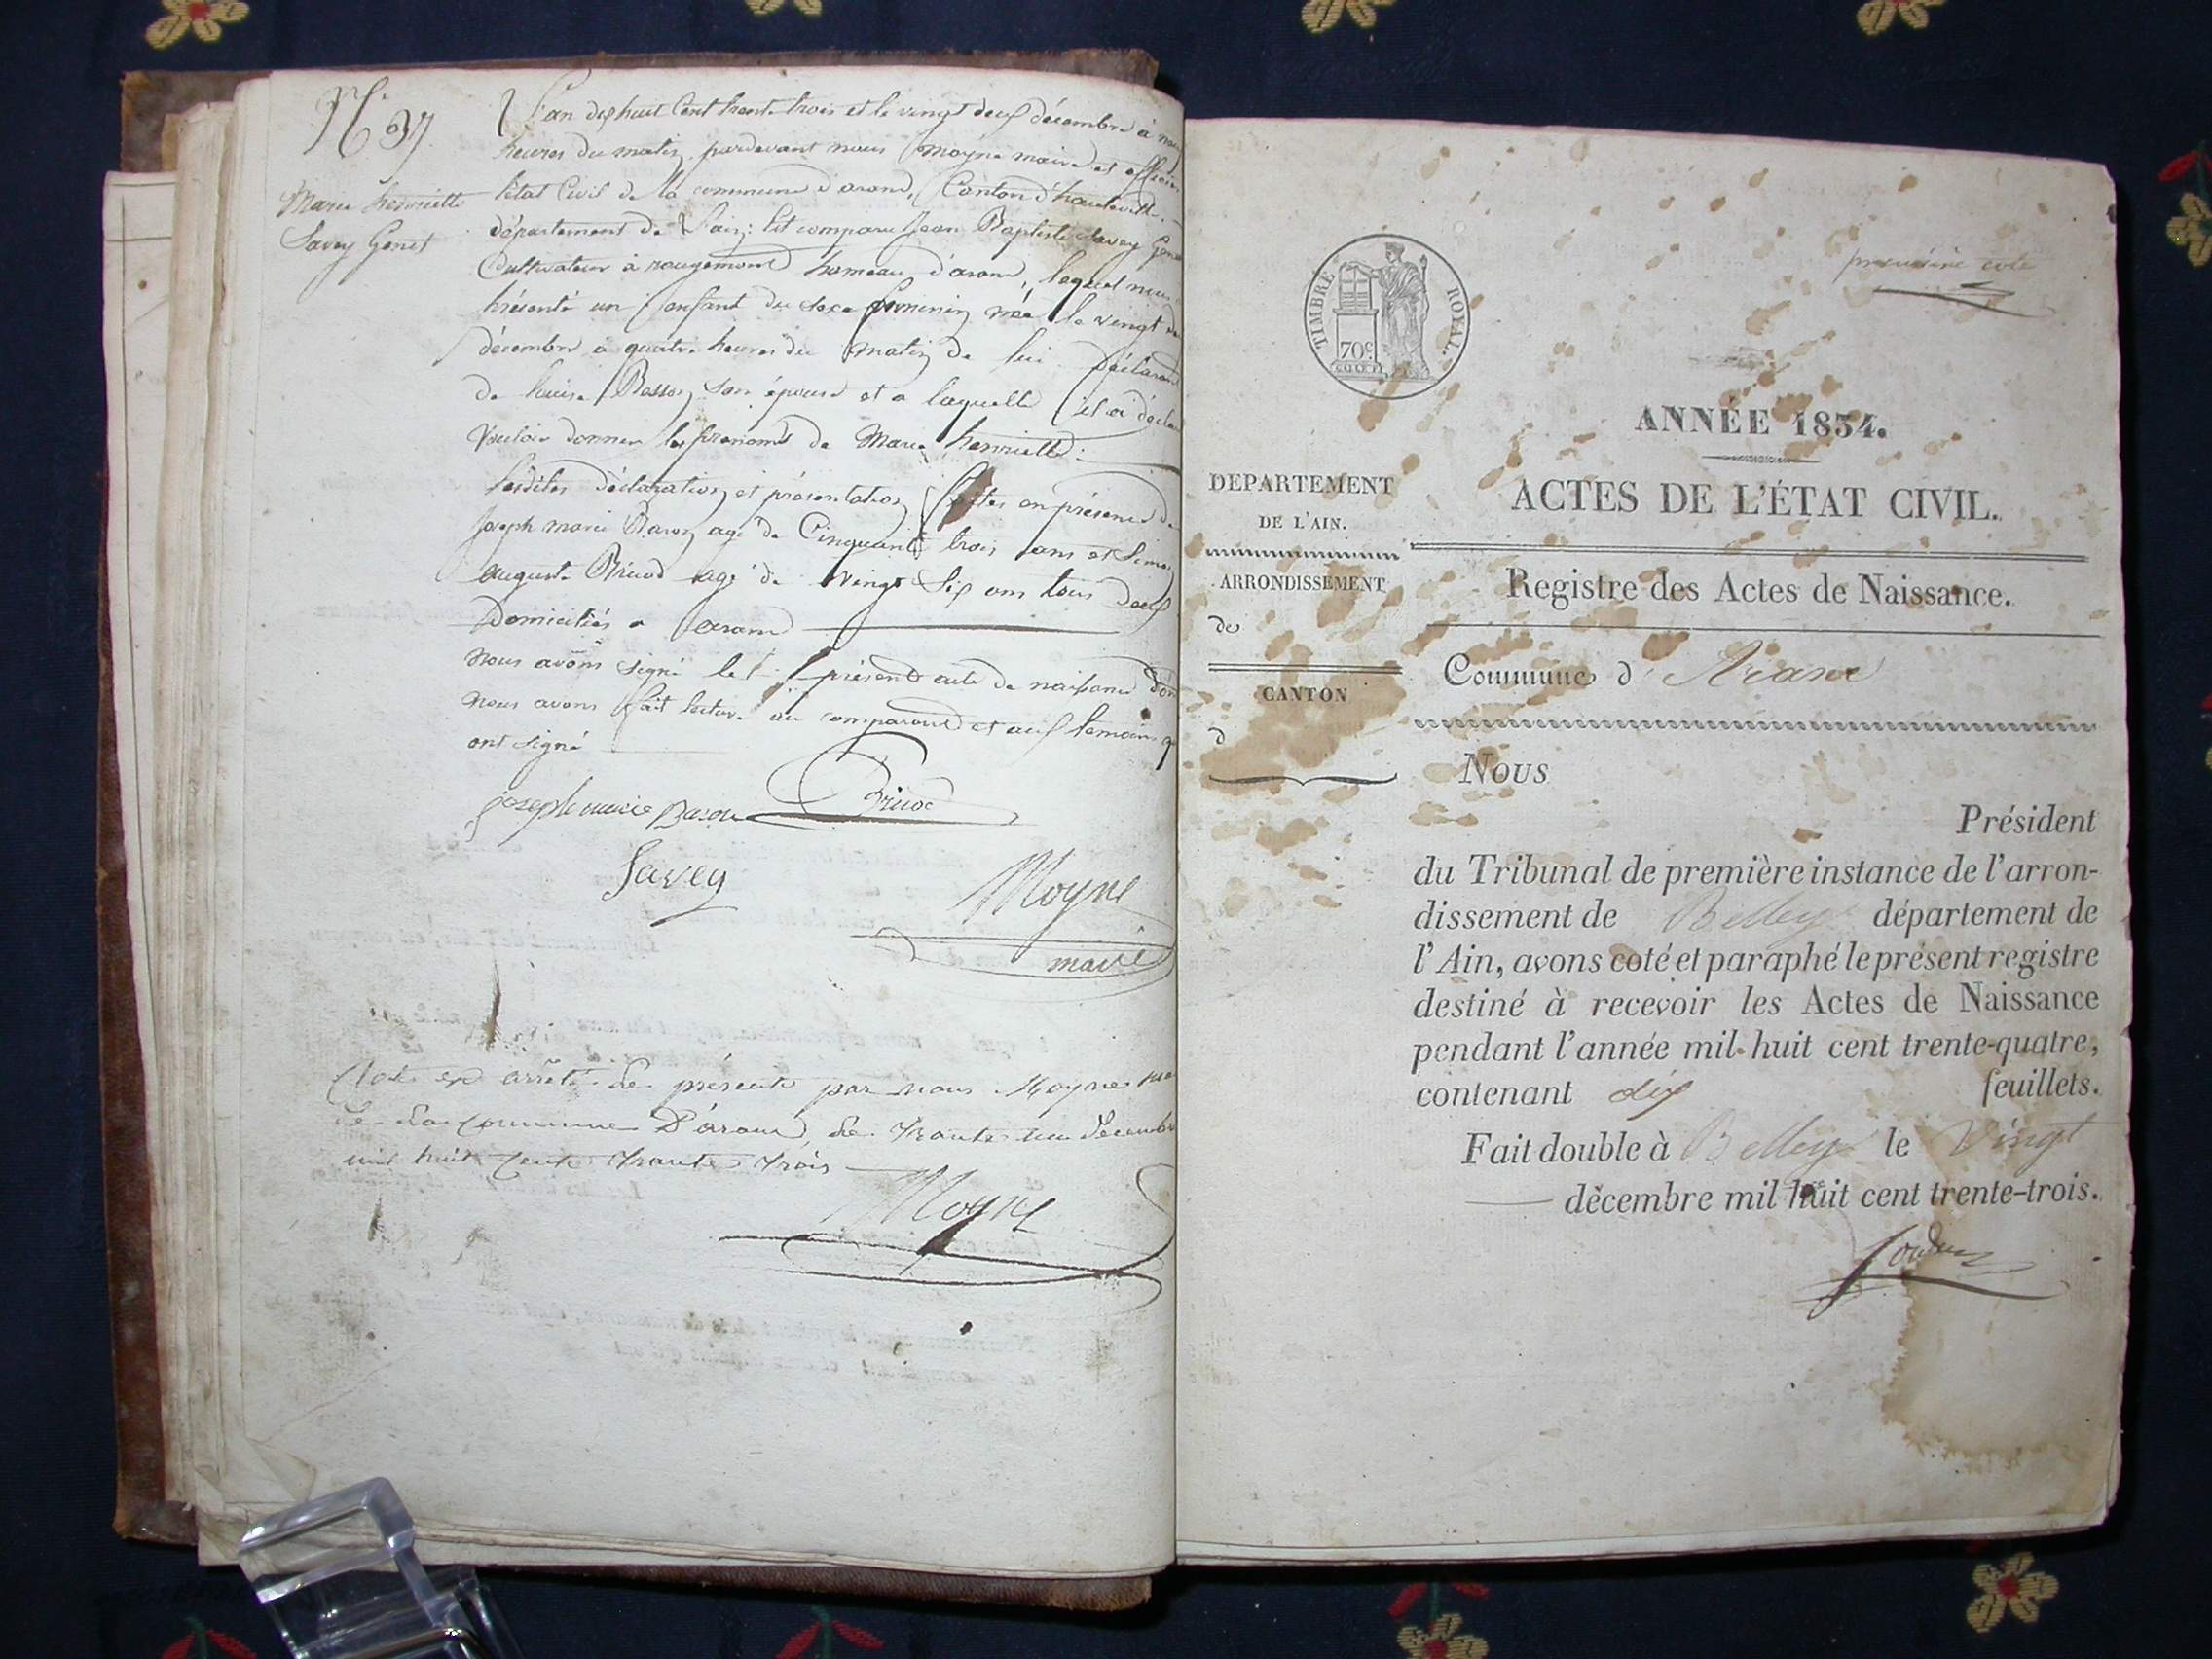 N° 37
Marie henriette
Savey Genet
L'an dix huit Cent trente trois et le vingt deux décembre à
heures du matin pardevant nous Moyne maire et officier
létat Civil de la commune d'aranc, Canton d'hauteville
département de L'ain; Est comparu Jean Baptiste Savey
Cultivateur à rougemont hameau d'aranc, lequel nous
présenté un enfant du sexe féminin née le vingt
décembre à quatre heures du matin de lui déclarant
de Louise Besson son épouse et a laquelle il a
Vouloir donner les prénoms de Marie henriette.
lesdites déclaration et présentation faites en présence de
Joseph marie Baron agé de Cinquante trois ans et
auguste Brucod agé de Vingt Six ans tous deux
Domiciliés a aranc
nous avons signé le présent acte de naissance
nous avons fait lecture au comparant et aux temoins
ont signé
joseph marie Baron
Savey
Moyne
maire
Clos et arrêté le présente par nous Moyne
de la commune D'aranc, le trante un décembre
mil huit cent trante trois
Moyne
première cote
TIMBRE ROYAL.
70c
ANNÉE 1834.
ACTES DE L'ÉTAT CIVIL.
DEPARTEMENT
DE L'AIN.
ARRONDISSEMENT
de
CANTON
d
Registre des Actes de Naissance.
Commune d'Aranc
Nous
Président
du Tribunal de première instance de l'arron-
dissement de Belley département de
l'Ain, avons coté et paraphé le présent registre
destiné à recevoir les Actes de Naissance
pendant l'année mil huit cent trente-quatre,
contenant dix feuillets.
Fait double à Belley le Vingt
décembre mil huit cent trente-trois.